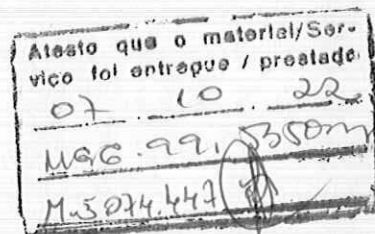 Atesto que o material/Ser-
viço foi entregue / prestado.
07 10 22
M.5074.447